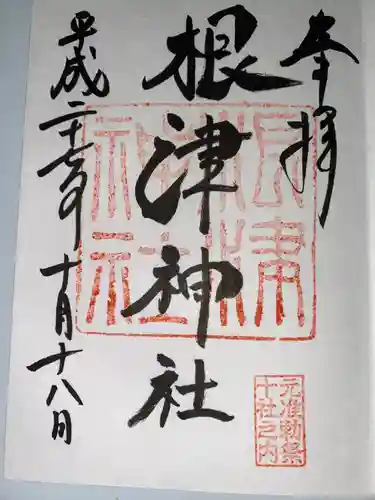 奉拝
根津神社
平成二十七年十月十八日
元准勅祭
十社之内